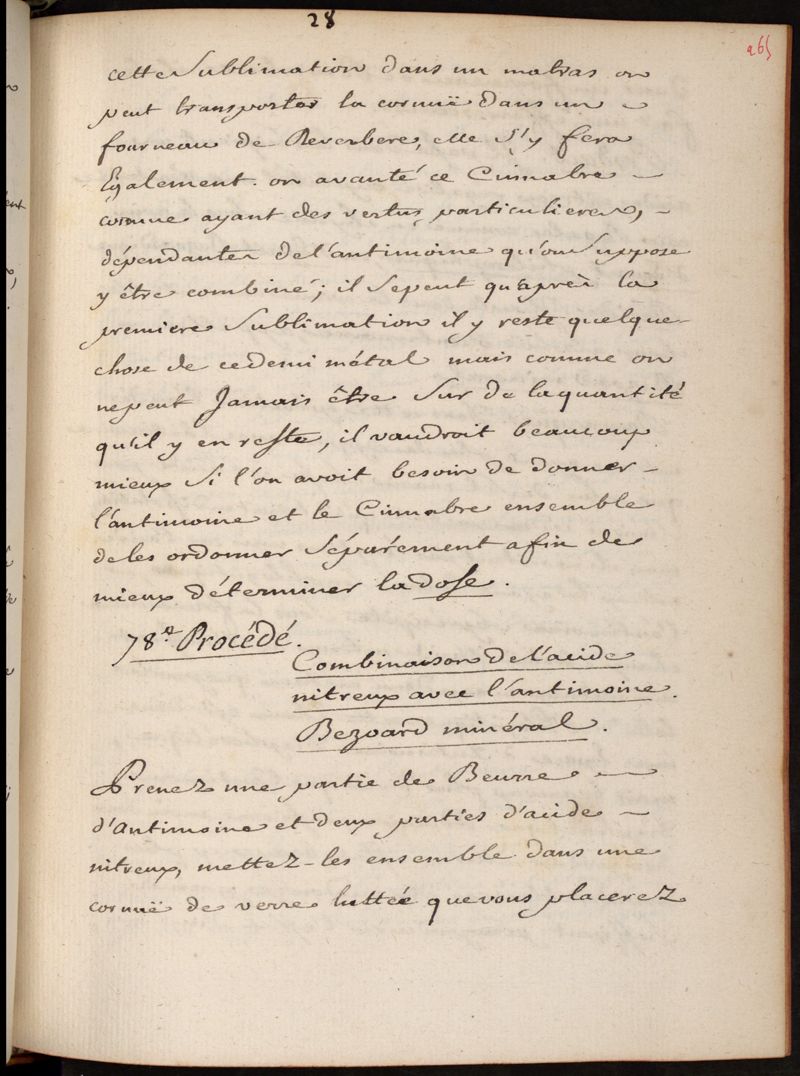 28
265
cette Sublimation dans un matras on
peut transporter la cornuë dans un
fourneau de Reverbere, elle S'y fera
Également. on avanté ce Cinnabre
comme ayant des vertus particulieres,
dépendantes de l'antimoine qu'on Suppose
y être combiné; il Sepeut qu'après la
premiere Sublimation il y reste quelque
chose de cedemi métal mais comme on
nepeut Jamais être Sur de laquantité
qu'il y en reste, il vaudroit beaucoup
mieux Si l'on avoit besoin de donner
l'antimoine et le Cinnabre ensemble
deles ordonner Séparément afin de
mieux déterminer ladose.
78e. Procédé.
Combinaison del'acide
nitreux avec l'antimoine.
Bezoard minéral.
Prenez une partie de Beurre
d'Antimoine et deux parties d'acide
nitreux, mettez-les ensemble dans une
cornuë de verre luttée quevous placerez